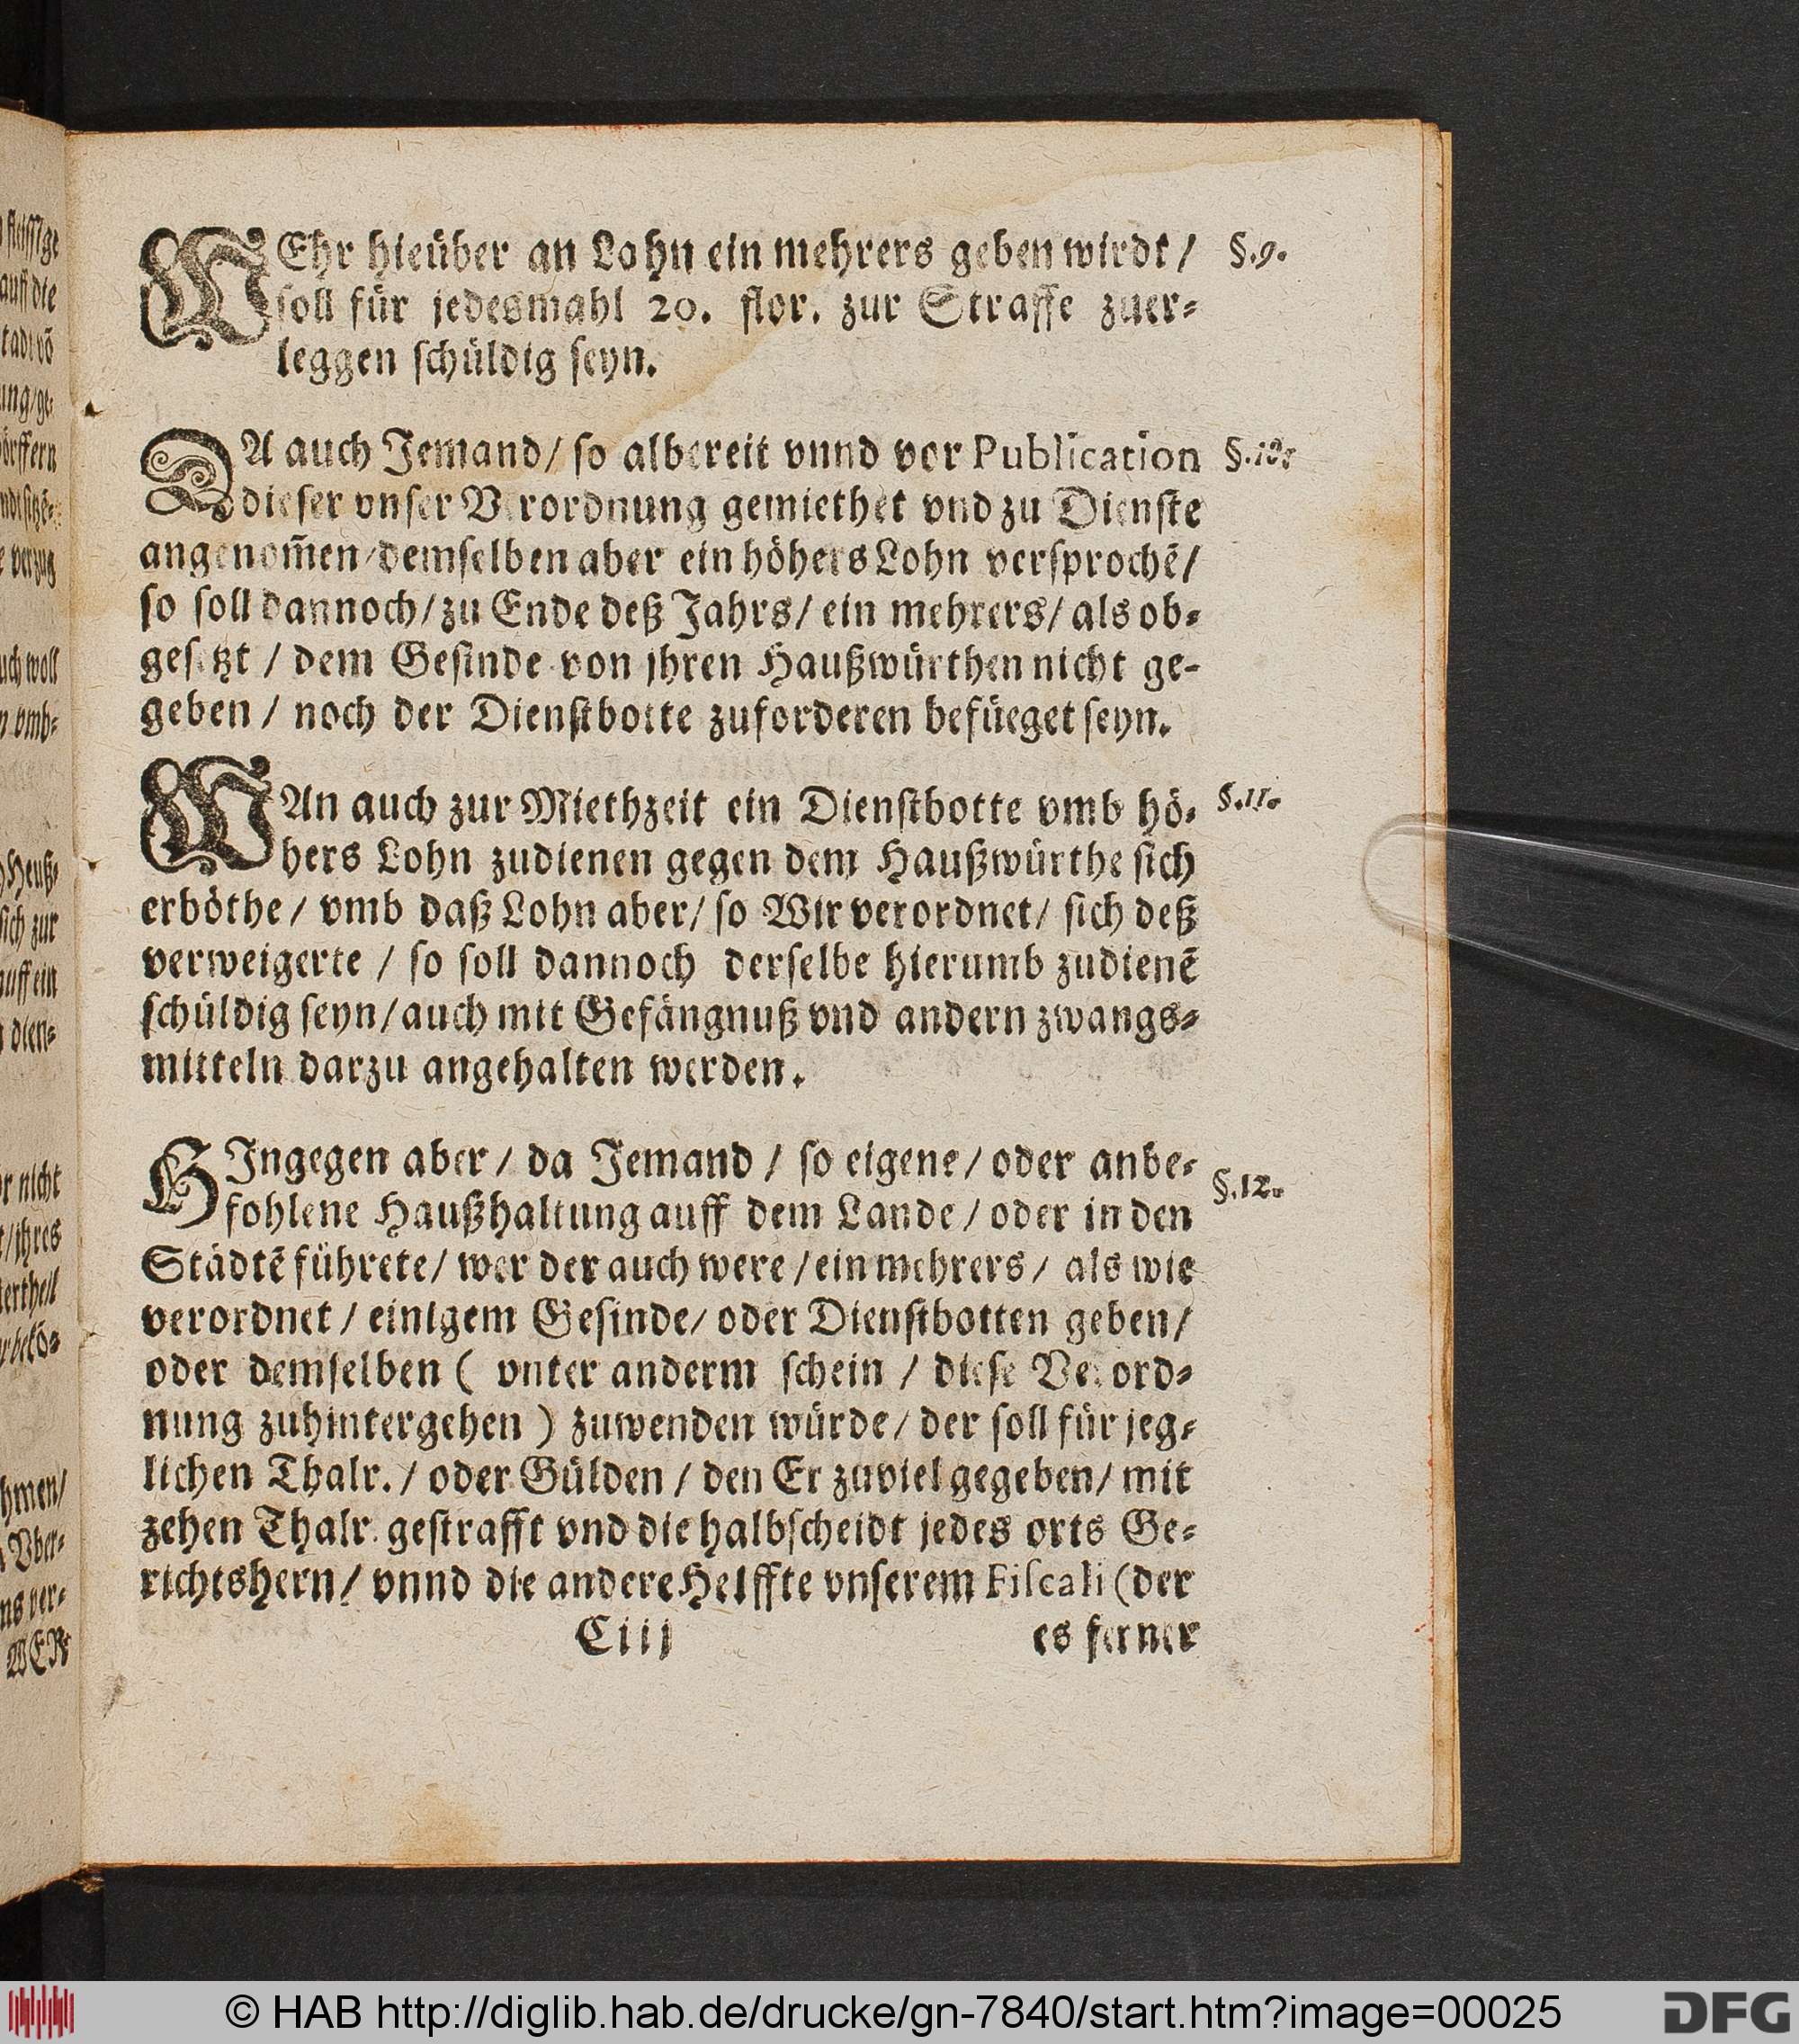 WEhr hieüber an Lohn ein mehrers geben wirdt / §.9.
soll für jedesmahl 20. flor. zur Straffe zuer⸗
leggen schüldig seyn.
DA auch Jemand / so albereit vnnd vor Publication §.10.
dieser vnser Verordnung gemiethet vnd zu Dienste
angenom̃en / demselben aber ein höhers Lohn versprochẽ /
so soll dannoch / zu Ende deß Jahrs / ein mehrers / als ob⸗
gesetzt / dem Gesinde von jhren Haußwürthen nicht ge-
geben / noch der Dienstbotte zuforderen befüeget seyn.
WAn auch zur Miethzeit ein Dienstbotte vmb hö⸗ §.11.
hers Lohn zudienen gegen dem Haußwürthe sich
erböthe / vmb daß Lohn aber / so Wir verordnet / sich deß
verweigerte / so soll dannoch derselbe hierumb zudienẽ
schüldig seyn / auch mit Gefängnuß vnd andern zwangs⸗
mitteln darzu angehalten werden.
HIngegen aber / da Jemand / so eigene / oder anbe⸗
fohlene Haußhaltung auff dem Lande / oder in den §.12.
Städtẽ führete / wer der auch were / ein mehrers / als wie
verordnet / einigem Gesinde / oder Dienstbotten geben /
oder demselben ( vnter anderm schein / diese Verord⸗
nung zuhintergehen ) zuwenden würde / der soll für jeg⸗
lichen Thalr. / oder Gülden / den Er zuviel gegeben / mit
zehen Thalr. gestrafft vnd die halbscheidt jedes orts Ge⸗
richtshern / vnnd die andere Helffte vnserem Fiscali (der
C iij es ferner
© HAB http://diglib.hab.de/drucke/gn-7840/start.htm?image=00025
DFG